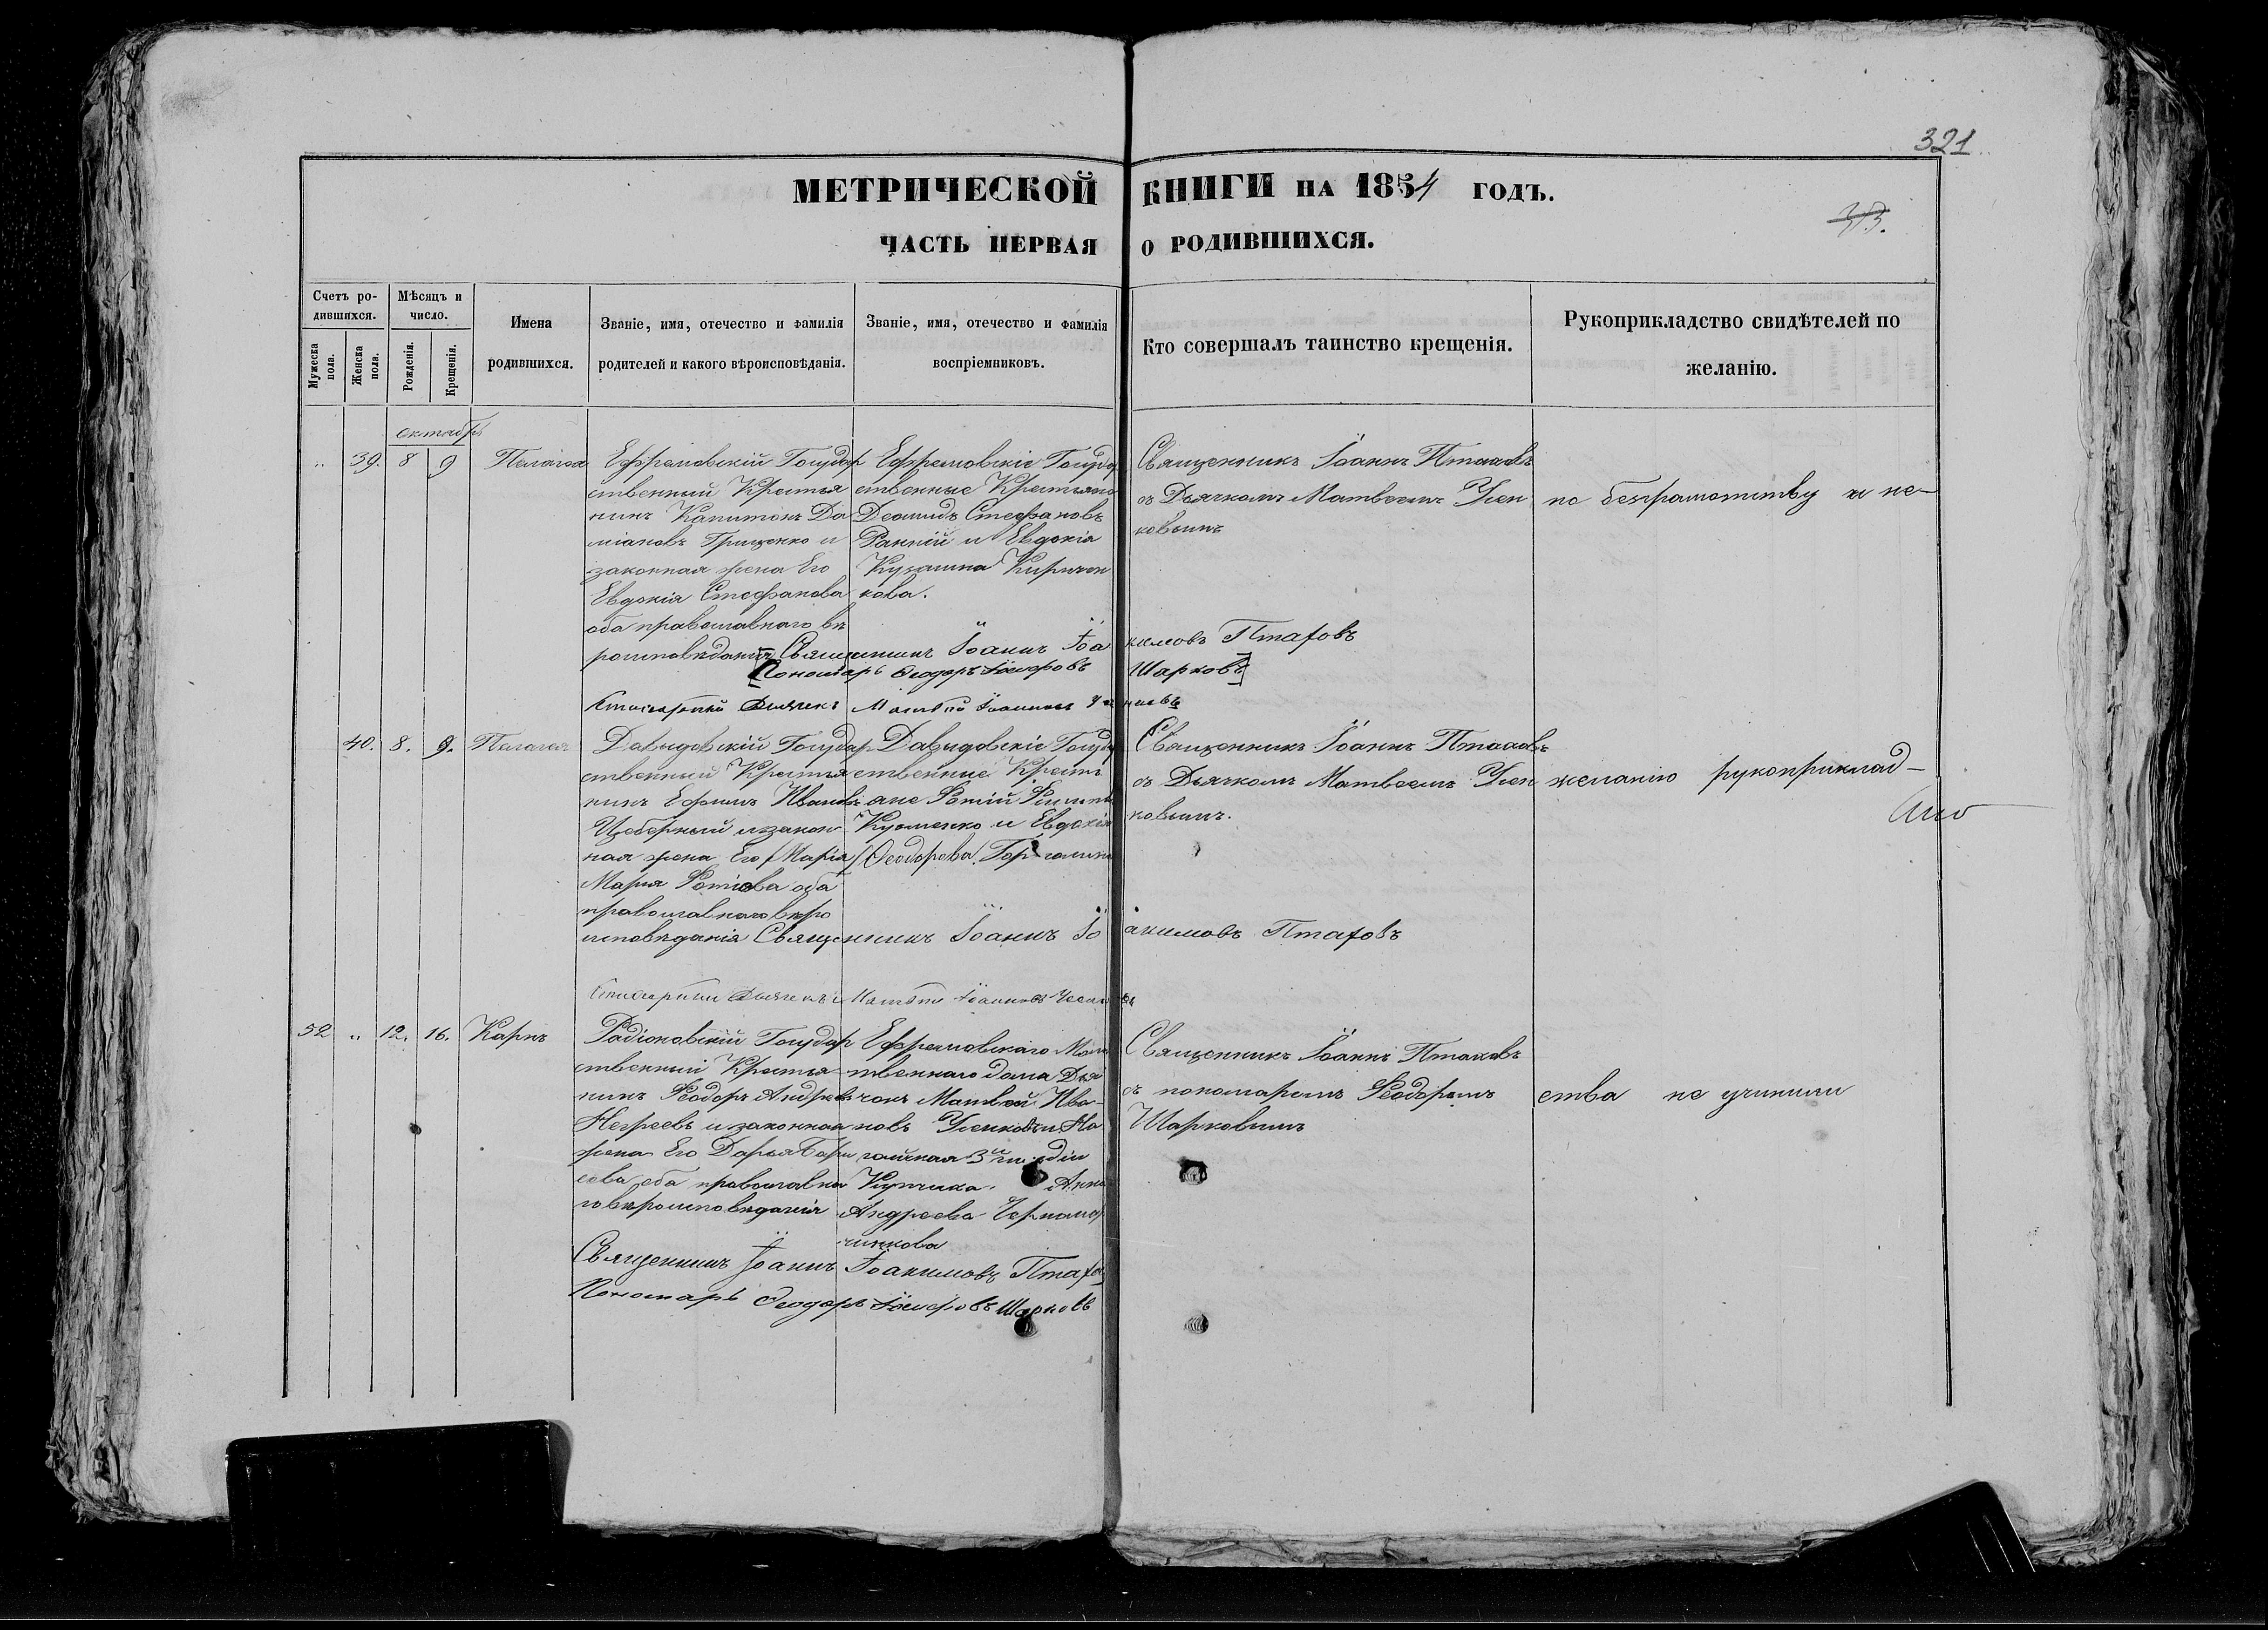 321
МЕТРИЧЕСКОЙ КНИГИ НА 1854 ГОДЪ.
ЧАСТЬ ПЕРВАЯ О РОДИВШИХСЯ.
Счетъ ро-
дившихся.
Мужеска
пола.
Женска
пола.
Мѣсяцъ и
число.
Рожденія.
Крещенія.
Имена
родившихся.
Званіе, имя, отечество и фамилія
родителей и какого вѣроисповѣданія.
Званіе, имя, отечество и фамилія
воспріемниковъ.
Кто совершалъ таинство крещенія.
Рукоприкладство свидѣтелей по
желанію.
октабрь
„ 39. 8 9 Пелагея
Ефремовскій Государ
ственный Крестья
нинъ Капитонъ Да
міановъ Грищенко и
законная жена Его
Евдокія Стефанова
оба православнаго вѣ
роисповѣданія
Ефремовскіе Госуда
ственные Крестьяне
Деомидъ Стефановъ
Ранній и Евдокія
Кузмина Киричен
кова.
Священникъ Іоаннъ Птаховъ
съ Дьячкомъ Матвеемъ Усен
ковымъ
по безграмотству и не-
Священникъ Іоаннъ Іоа кимовъ Птаховъ
Пономарь Ѳеодоръ Іосифовъ Шарковъ
Стихарный Дьячекъ Матвей Іоанновъ
40. 8. 9. Пелагея
Давыдовскій Государ
ственный Крестья
нинъ Ефимъ Ивановъ
Цеберный и закон
ная жена Его Марія
Марія Фотіова оба
православнаго вѣро
исповѣданія
Давыдовскіе Госуда
ственные Крестья
ане Фотій
Кузменко и Евдокія
Ѳеодорова
Священникъ Іоаннъ Птаховъ
съ Дьячкомъ Матвеемъ Усен
ковымъ.
желанію рукоприклад-
Священникъ Іоаннъ Іо акимовъ Птаховъ
Стихарный Дьячекъ Матвей Іоанновъ
52 „ 12. 16. Карпъ
Радіоновскій Государ
ственный Крестья
нинъ Ѳеодоръ Андреевъ
Негреевъ и законная
жена Его Дарья Бори
сова оба православна
го вѣроисповѣданія
Ефремовскаго Моли
твеннаго дома Дья
чокъ Матвей Ива-
новъ Усенковъ и Но
гайская 3й гильдіи
Купчиха Анна
Андреева Черномор
ченкова
Священникъ Іоаннъ Птаховъ
съ пономаремъ Ѳеодоромъ
Шарковымъ
ства не учинили
Священникъ Іоаннъ Іоакимовъ Птаховъ
Пономарь Ѳеодоръ Іосифовъ Шарковъ